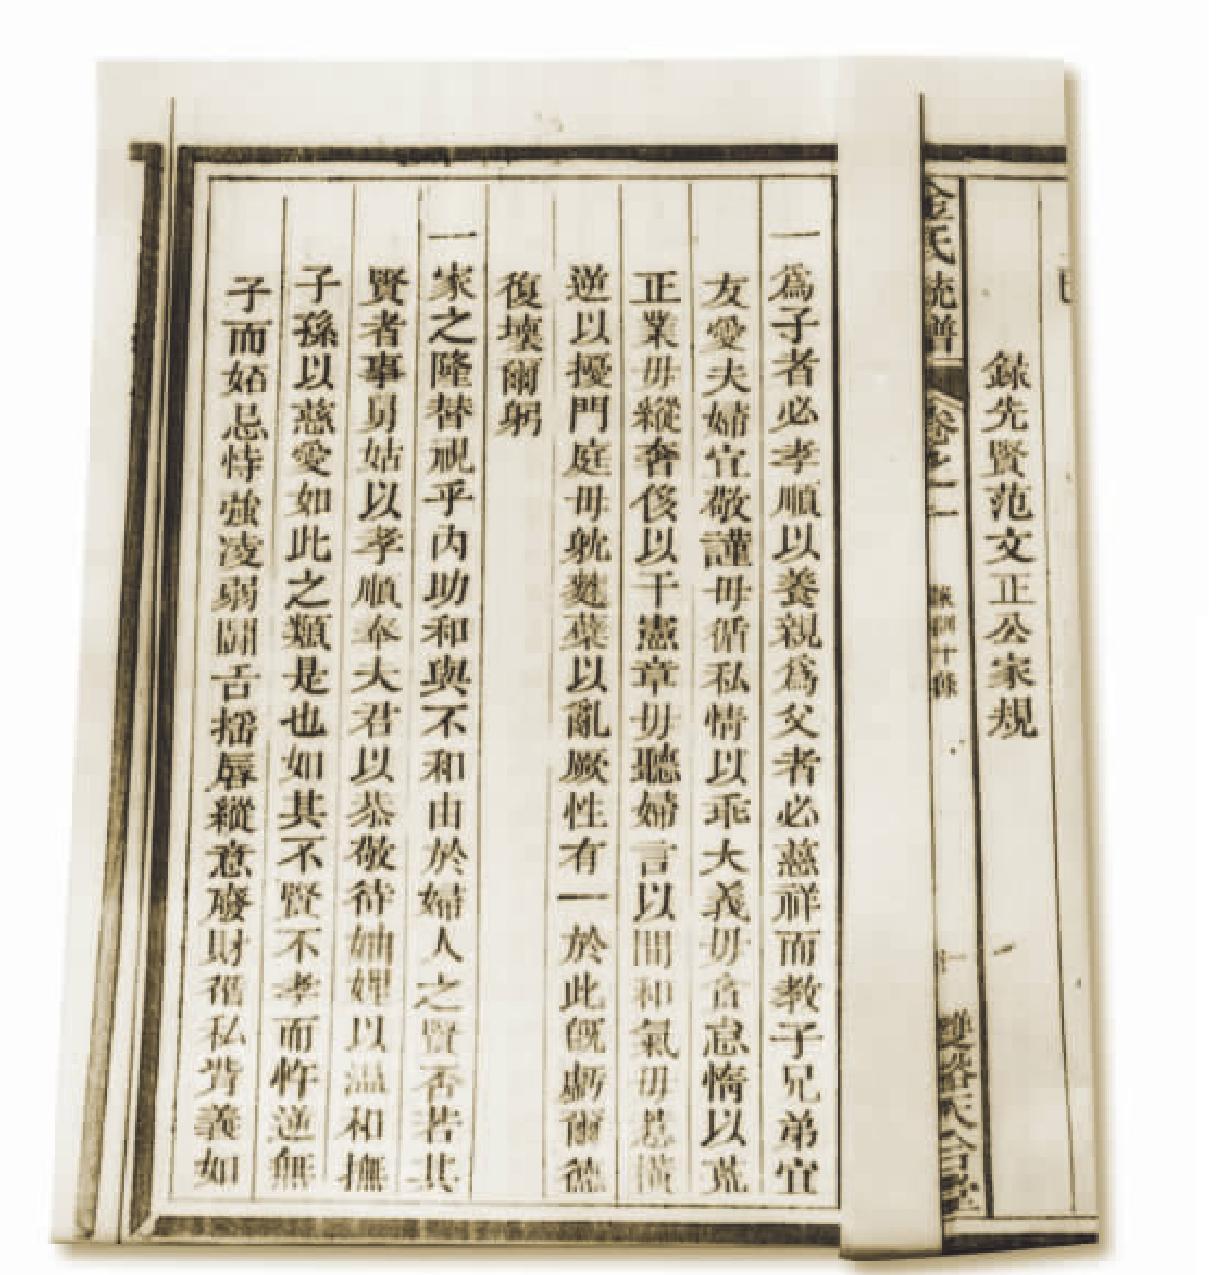 錄先賢范文正公家規
金氏統譜
卷之一
家訓十條
一
雙谿天合堂
一為子者必孝順以養親為父者必慈祥而教子兄弟宜
友愛夫婦宜敬謹毋循私情以乖大義毋 怠惰以荒
正業毋縱奢侈以干憲章毋聽婦言以間和氣毋 橫
逆以擾門庭毋躭麴蘖以亂厥性有一於此既虧爾德
復壞爾躬
一家之隆替視乎內助和與不和由於婦人之賢否若其
賢者事舅姑以孝順奉夫君以恭敬待妯娌以溫和撫
子孫以慈愛如此之類是也如其不賢不孝而忤逆無
子而妬忌恃強凌弱鬪舌搖唇縱意廢財 私背義如